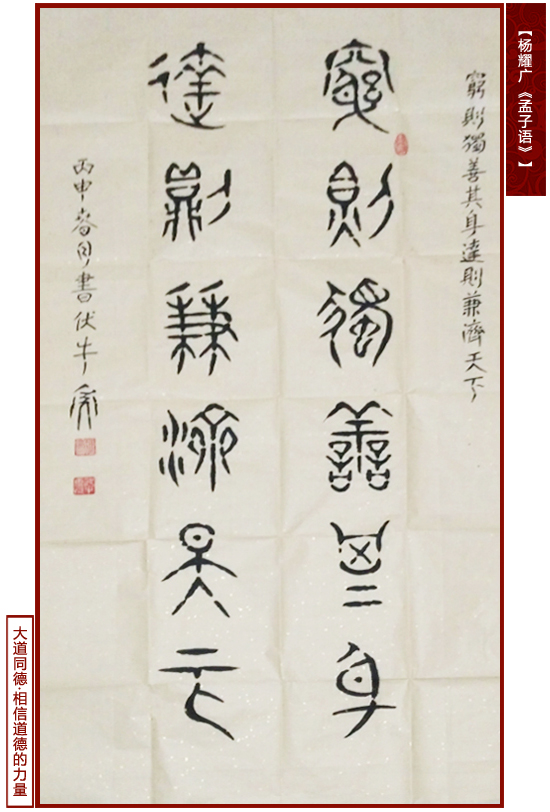 【杨耀广《孟子语》】
窮則獨善其身達則兼濟天下
窮則獨善其身
達則兼濟天下
丙申春月書伏牛
大道同德·相信道德的力量